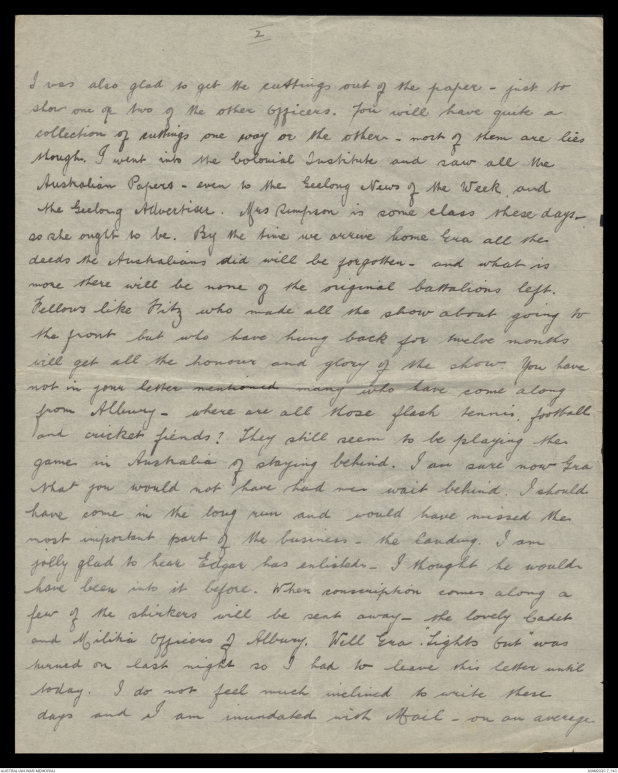 2
I was also glad to get the cuttings out of the paper - just to
show one or two of the other Officers. You will have quite a
collection of cuttings one way or the other - most of them are lies
though. I went into the Colonial Institute and saw all the
Australian Papers - even to the Geelong News of the Week and
the Geelong Advertiser. Mrs Simpson is some class these days -
so she ought to be. By the time we arrive home Era all the
deeds the Australians did will be forgotten - and what is
more there will be none of the original battalions left.
Fellows like Fitz who made all the show about going to
the front but who have hung back for twelve months
will get all the honour and glory of the show. You have
not in your letter mentioned many who have come along
from Albury - where are all those flash tennis, football
and cricket fiends? They still seem to be playing the
game in Australia of staying behind. I am sure now Era
that you would not have had me wait behind. I should
have come in the long run and would have missed the
most important part of the business - the landing. I am
jolly glad to hear Edgar has enlisted - I thought he would
have been into it before. When conscription comes along a
few of the shirkers will be sent away - the lovely Cadet
and Militia Officers of Albury. Well Era "Lights Out" was
turned on last night so I had to leave this letter until
today. I do not feel much inclined to write these
days and I am inundated with Mail - on an average
AUSTRALIAN WAR MEMORIAL